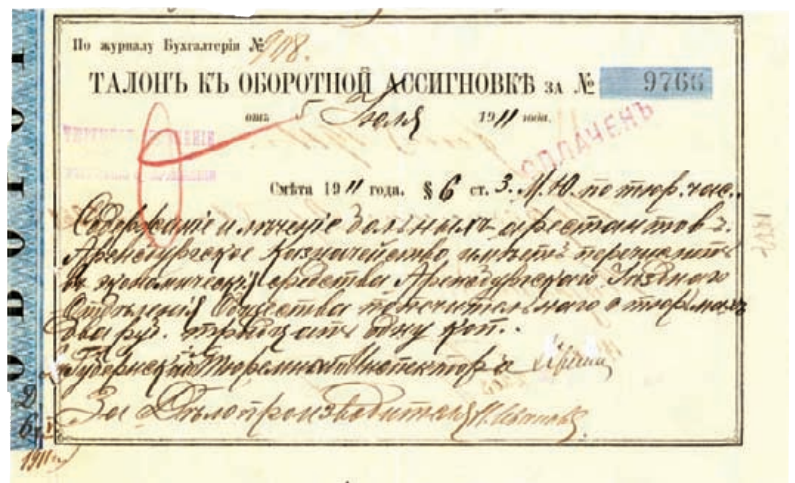 По журналу Бухгалтеріи № 908.
ТАЛОНЪ КЪ ОБОРОТНОЙ АССИГНОВКѢ за № 9766
отъ 5 Іюля 1911 года.
ОПЛАЧЕНЪ
Смѣта 1911 года. § 6 ст. 3. М. Ю. по тюр. час.
Содержаніе и лѣченіе больныхъ арестантовъ.
Аренсбургское Казначейство имѣетъ перечислить
въ экономическія средства Аренсбургскаго Уѣзднаго
Отдѣленія Общества попечительнаго о тюрьмахъ
два руб. тридцать одну коп..
Губернскій Тюремный Инспекторъ
За Дѣлопроизводителя Н. Ивановъ
1911